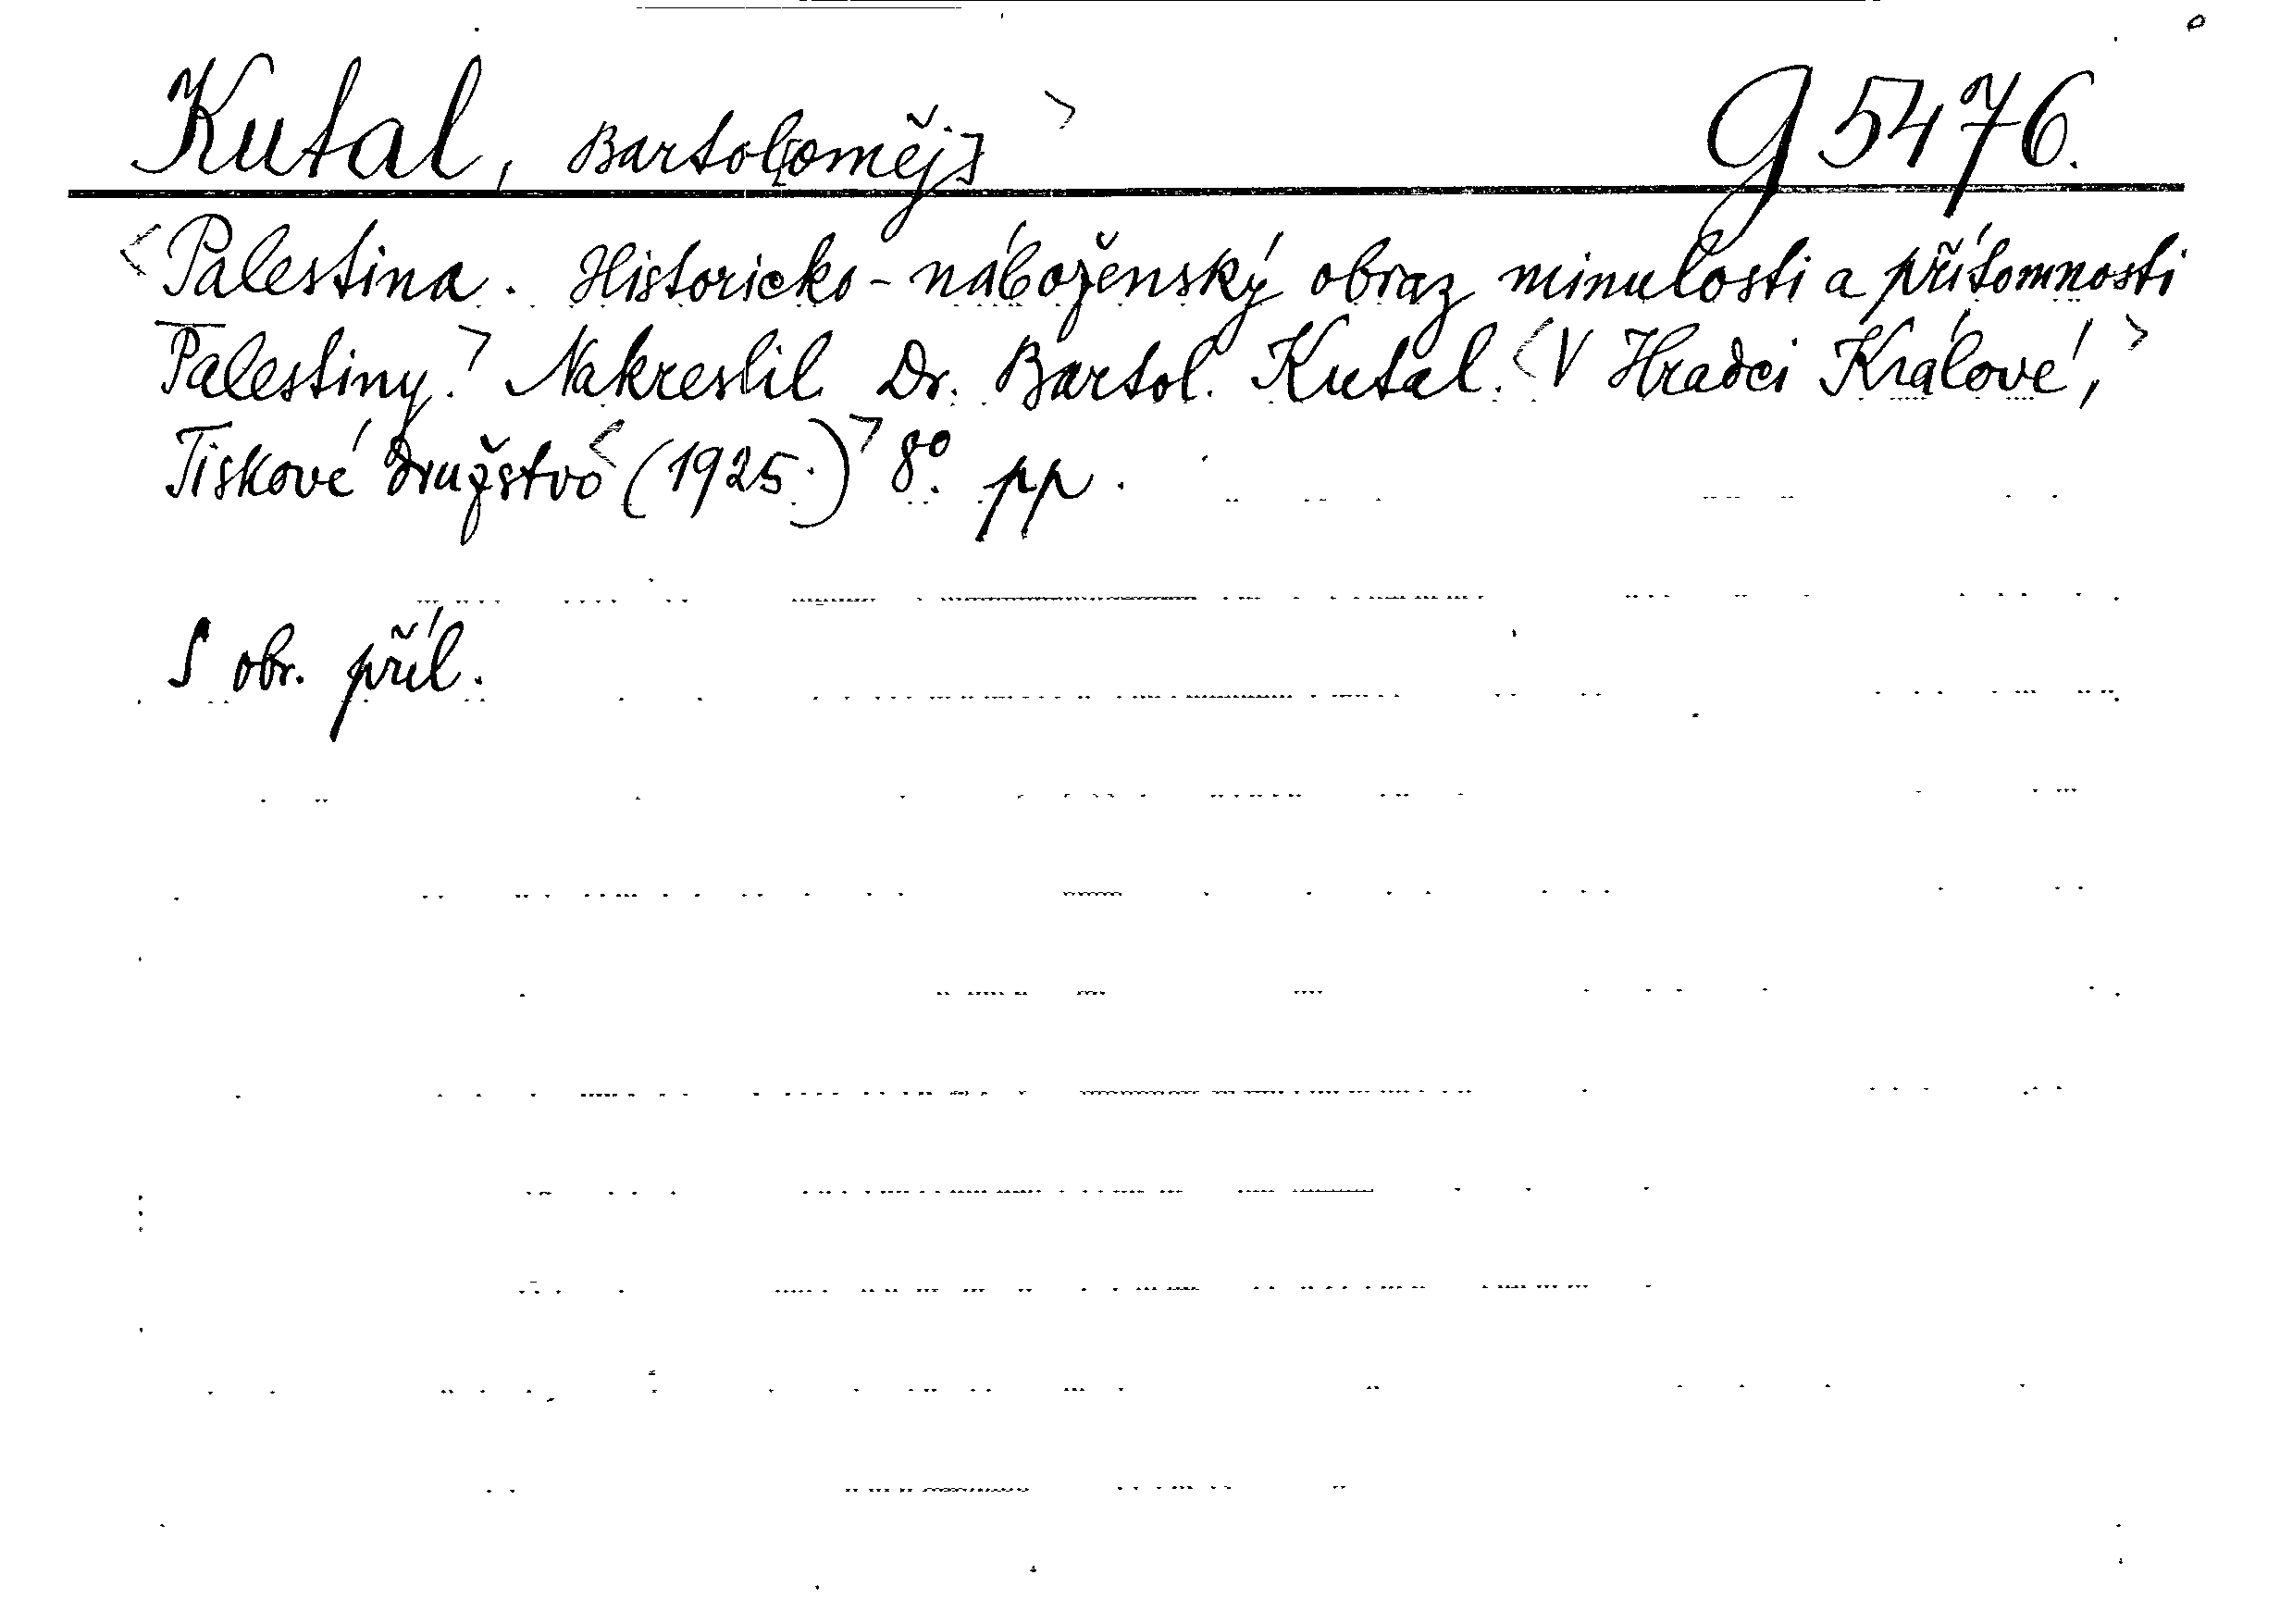 Kutal, Bartol[oměj] > G 5476.
<Palestina. Historicko-náboženský obraz minulosti a přítomnosti
Palestiny.> Nakreslil Dr. Bartol. Kutal. <V Hradci Králové,>
Tiskové družstvo <(1925.)> 8º. pp.
S obr. příl.